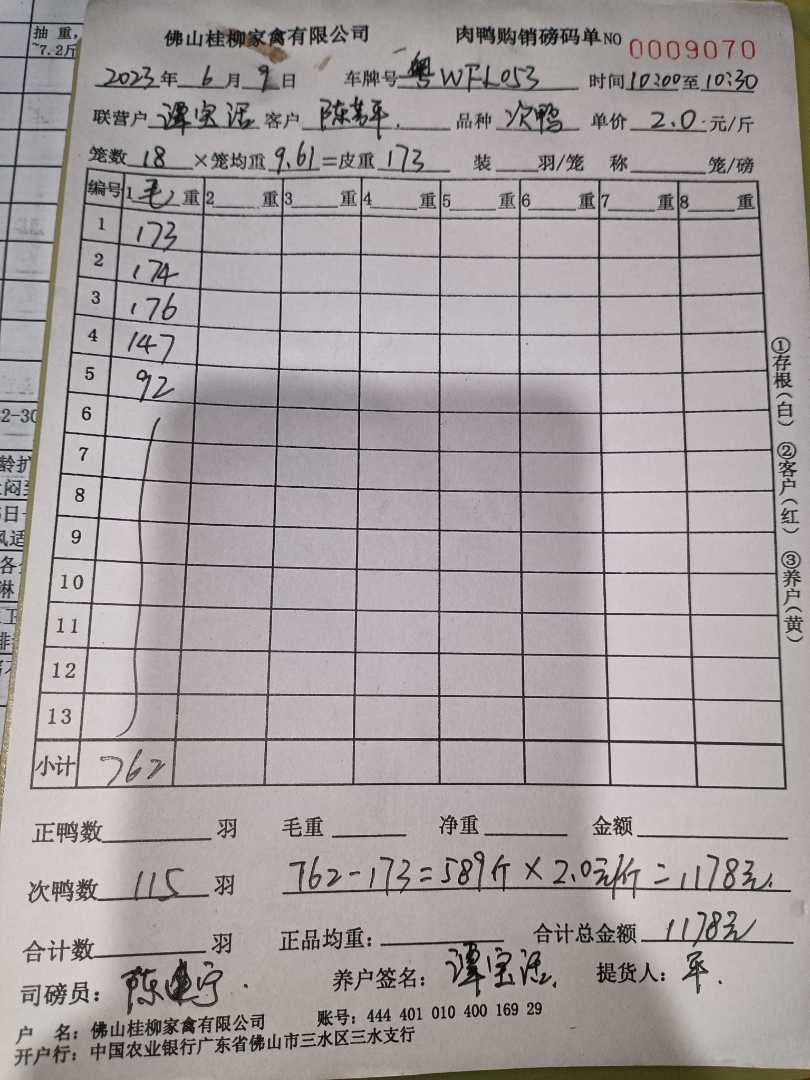 抽 重，
~7.2斤
佛山桂柳家禽有限公司 肉鸭购销磅码单NO 0009070
2023年 6 月 9 日 车牌号 粤WFL053 时间10:00至10:30
联营户 谭宝 客户 陈 平. 品种 次鸭 单价 2.0 元/斤
笼数 18 ×笼均重 9.61=皮重 173 装 羽/笼 称 笼/磅
编号 1 毛 重 2 重 3 重 4 重 5 重 6 重 7 重 8 重
1 173
2 174
3 176
4 147
5 92
6
7
8
9
10
11
12
13
小计 762
①存根(白) ②客户(红) ③养户(黄)
正鸭数 羽 毛重 净重 金额
次鸭数 115 羽 762-173=589斤×2.0元/斤=1178元.
合计数 羽 正品均重: 合计总金额 1178元
司磅员: 陈建宁. 养户签名: 谭宝 . 提货人: 平.
户 名: 佛山桂柳家禽有限公司 账号: 444 401 010 400 169 29
开户行: 中国农业银行广东省佛山市三水区三水支行
2-30